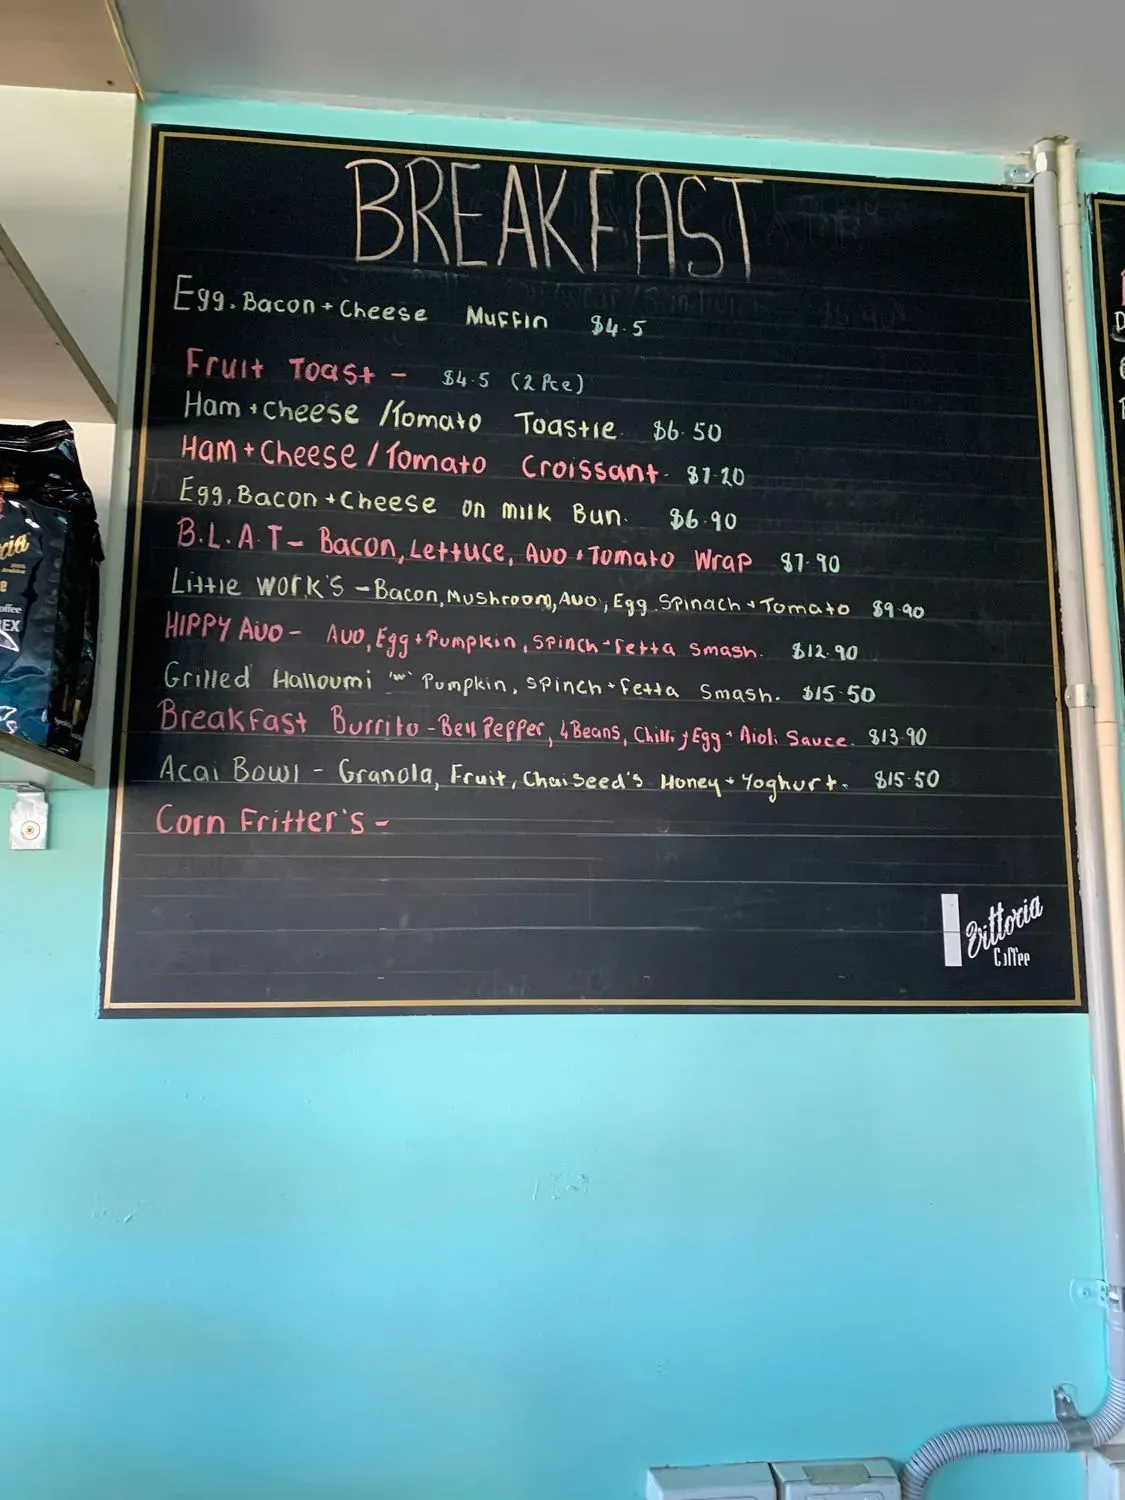 BREAKFAST
Egg. Bacon + Cheese Muffin $4.5
Fruit Toast - $4.5 (2 Pce)
Ham + Cheese / Tomato Toastie. $6.50
Ham + Cheese / Tomato Croissant. $7.20
Egg, Bacon + Cheese on milk Bun. $6.90
B.L.A.T - Bacon, Lettuce, Avo + Tomato Wrap $7.90
Little work's - Bacon, Mushroom, Avo, Egg. Spinach + Tomato $9.90
HIPPY AVO - Avo, Egg + Pumpkin, Spinch + Fetta Smash. $12.90
Grilled Halloumi "w" Pumpkin, Spinch + Fetta Smash. $15.50
Breakfast Burrito - Bell Pepper, 4 Beans, Chilli, Egg + Aioli Sauce. $13.90
Acai Bowl - Granola, Fruit, Chaiseed's Honey + Yoghurt. $15.50
Corn Fritter's -
Vittoria
Coffee